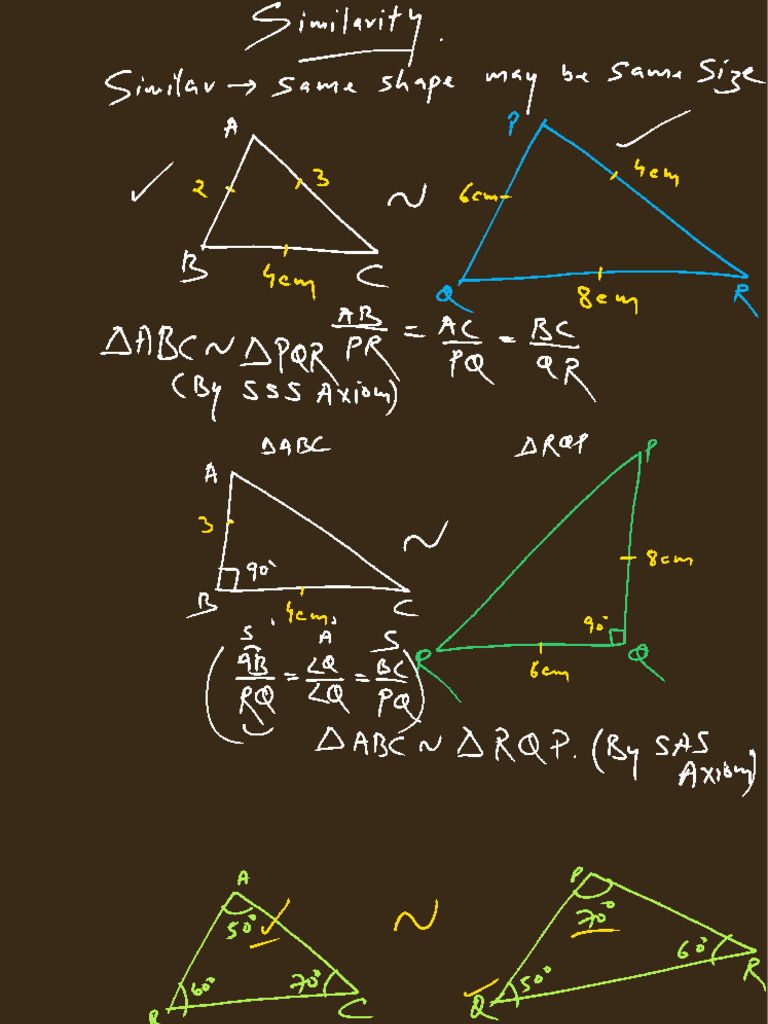 Similarity.
Similar → same shape may be same size
A
P
2
3
~
6cm
4cm
B
4cm
C
Q
8cm
R
ΔABC ~ ΔPQR AB/PR = AC/PQ = BC/QR
(By SSS Axiom)
ΔABC
ΔRQP
A
P
3
~
8cm
90°
B
4cm
C
90°
R
6cm
Q
S A S
(AB/RQ = ∠Q/∠Q = BC/PQ)
ΔABC ~ ΔRQP. (By SAS
Axiom)
A
P
50°
~
70°
60°
70°
50°
60°
B
C
Q
R